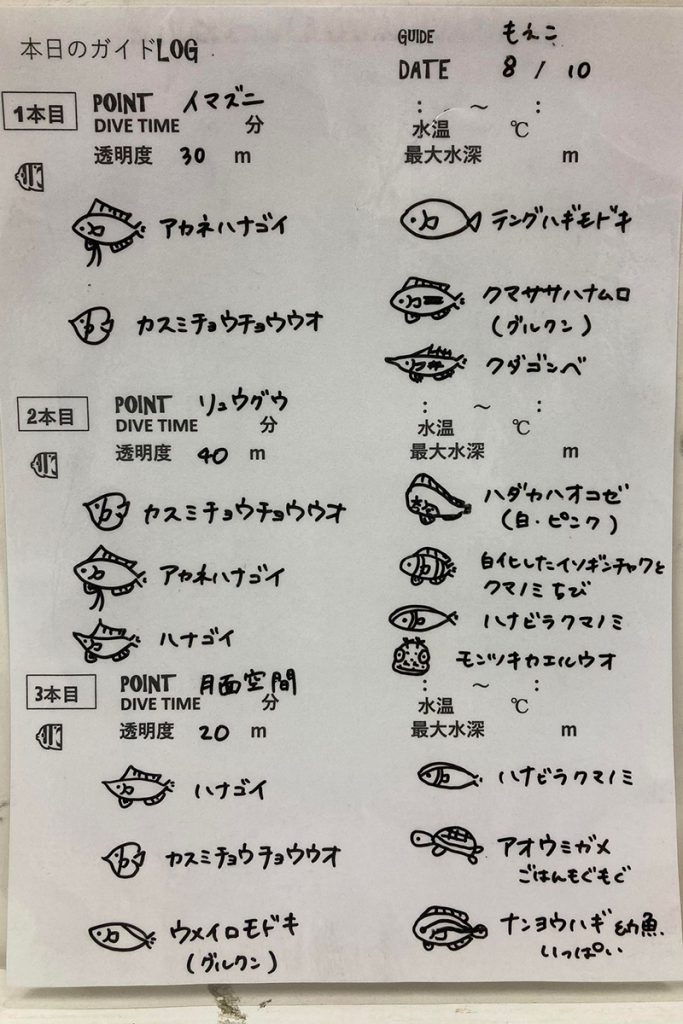 本日のガイドLOG
GUIDE もえこ
DATE 8 / 10
1本目 POINT イマズニ
DIVE TIME 分 : 〜 :
水温 ℃
透明度 30 m 最大水深 m
アカネハナゴイ
テングハギモドキ
カスミチョウチョウウオ
クマササハナムロ
(グルクン)
クダゴンベ
2本目 POINT リュウグウ
DIVE TIME 分 : 〜 :
水温 ℃
透明度 40 m 最大水深 m
カスミチョウチョウウオ
ハダカハオコゼ
(白・ピンク)
アカネハナゴイ
白化したイソギンチャクと
クマノミちび
ハナゴイ
ハナビラクマノミ
モンツキカエルウオ
3本目 POINT 月面空間
DIVE TIME 分 : 〜 :
水温 ℃
透明度 20 m 最大水深 m
ハナゴイ
ハナビラクマノミ
カスミチョウチョウウオ
アオウミガメ
ごはんもぐもぐ
ウメイロモドキ
(グルクン)
ナンヨウハギ幼魚
いっぱい